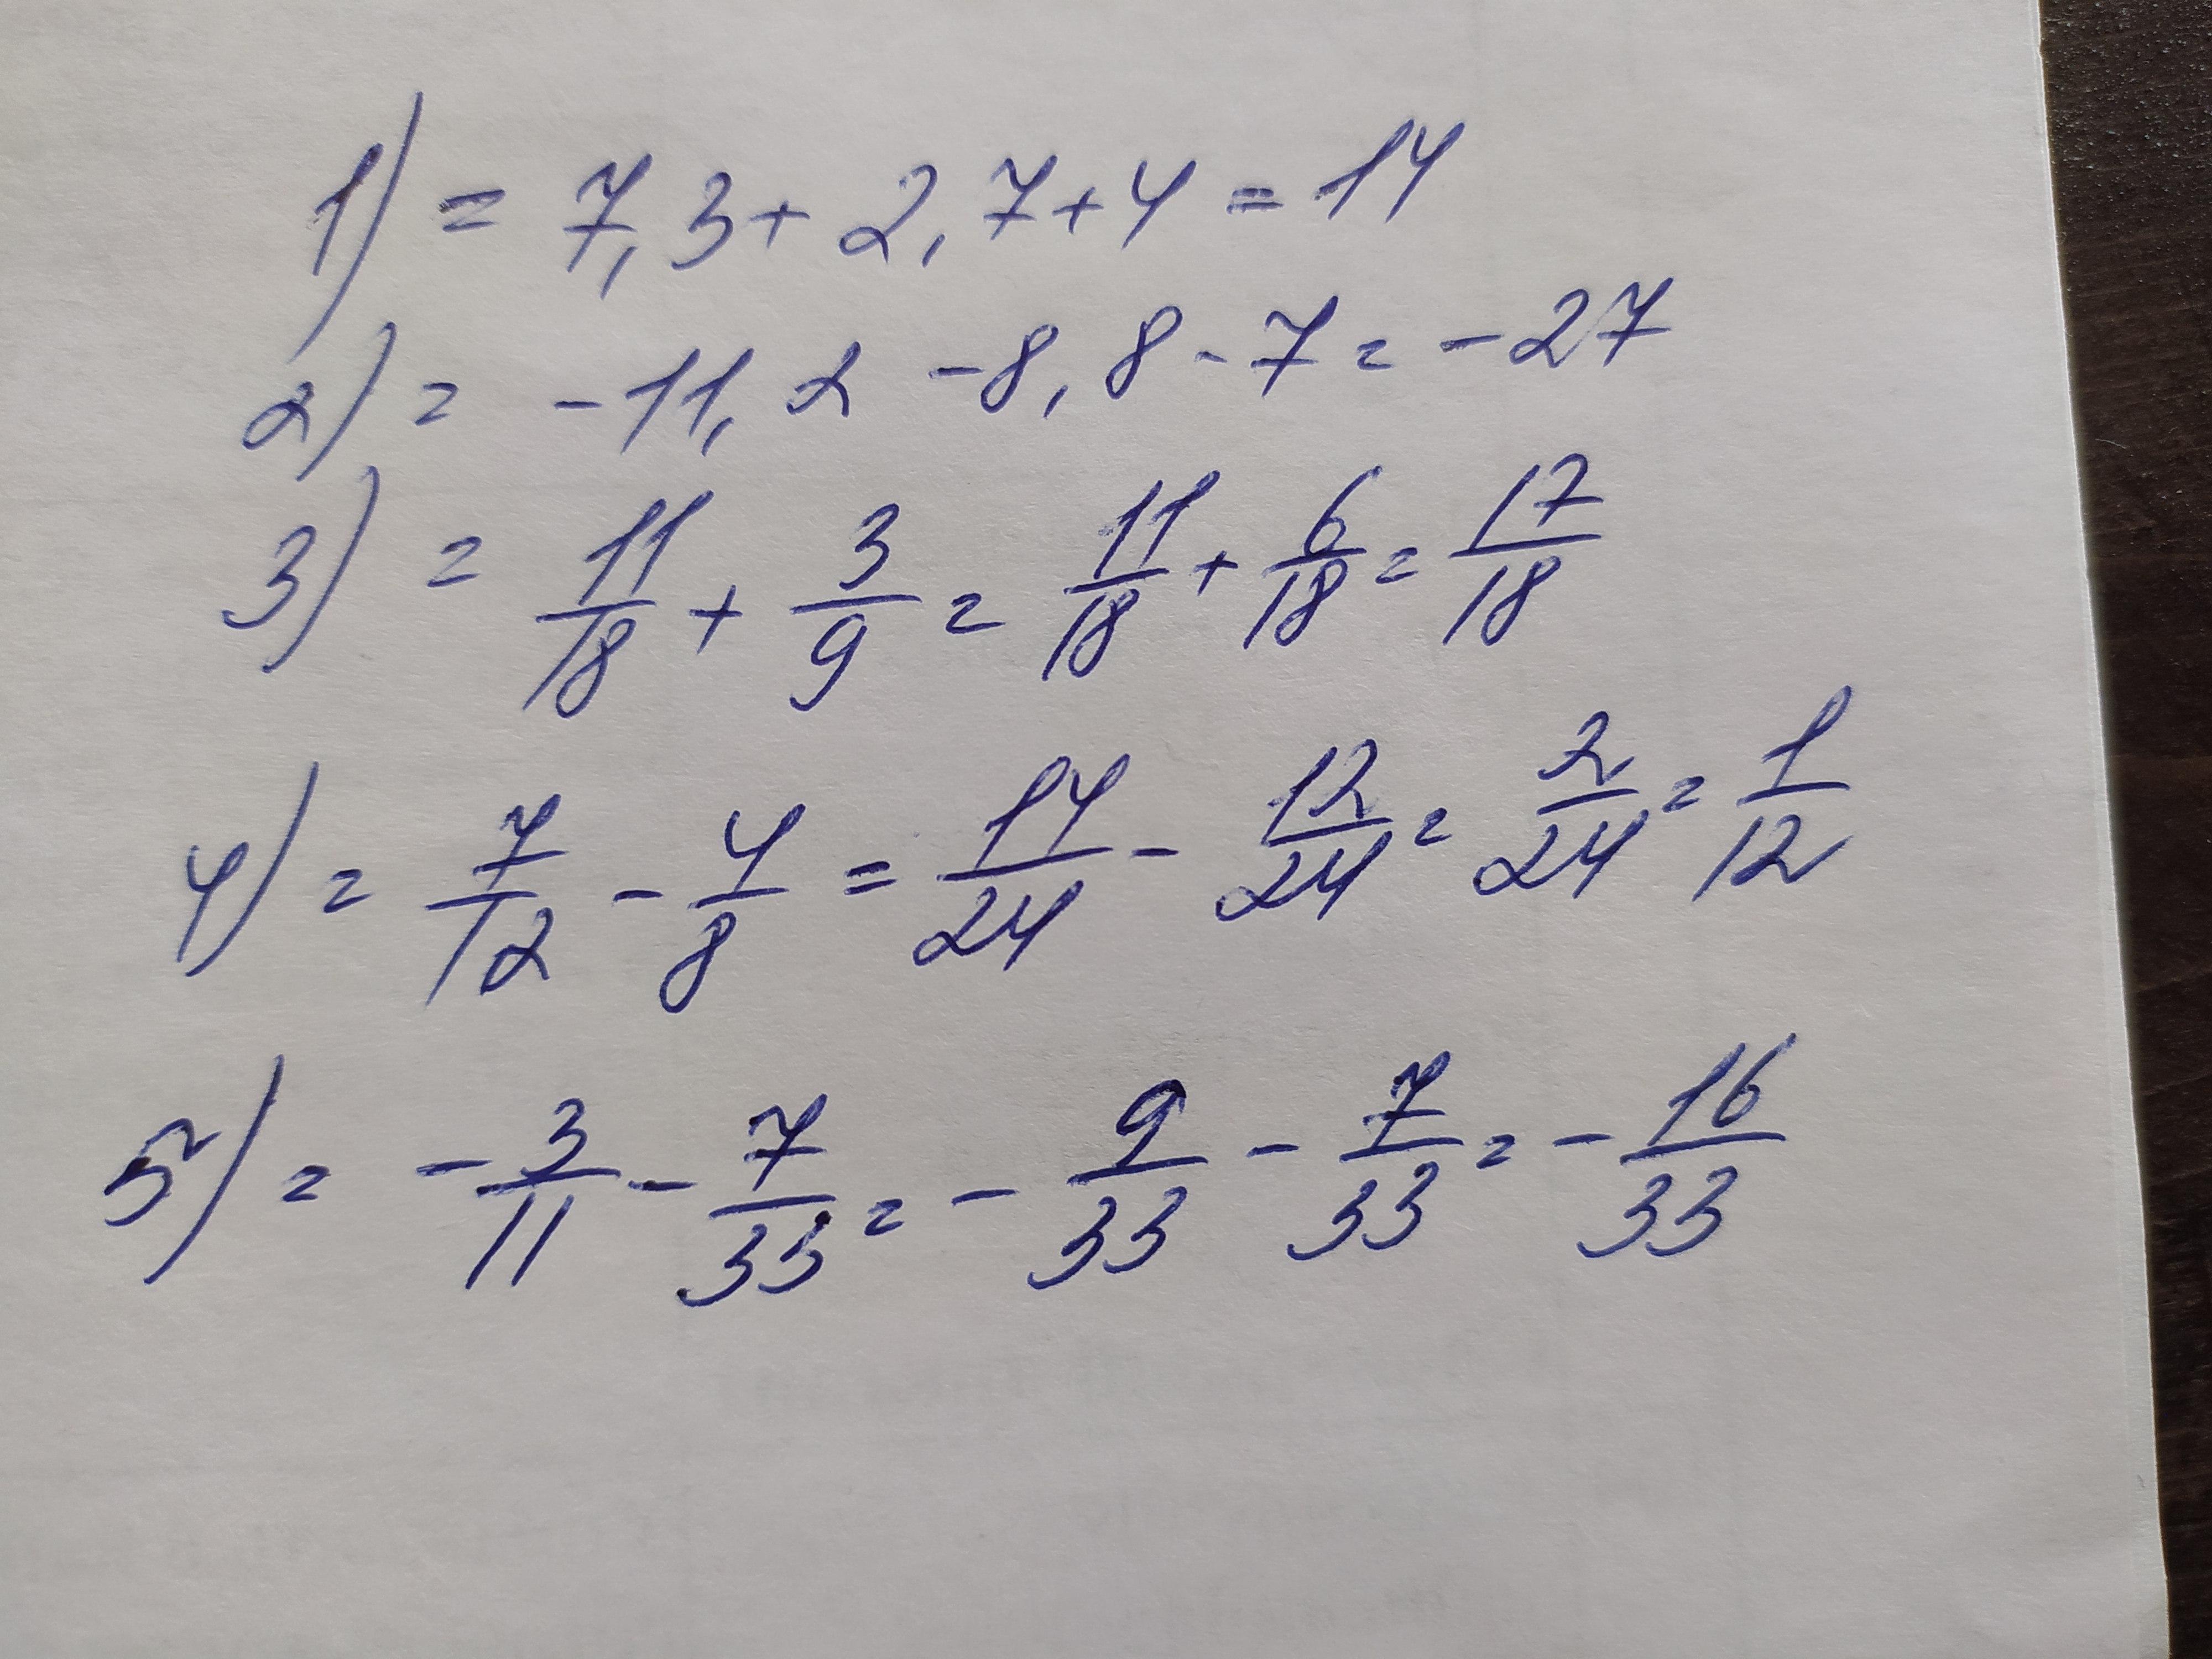 1) = 7,3 + 2,7 + 4 = 14
2) = -11,2 - 8,8 - 7 = -27
3) = 11/18 + 3/9 = 11/18 + 6/18 = 17/18
4) = 7/12 - 4/8 = 14/24 - 12/24 = 2/24 = 1/12
5) = -3/11 - 7/33 = -9/33 - 7/33 = -16/33